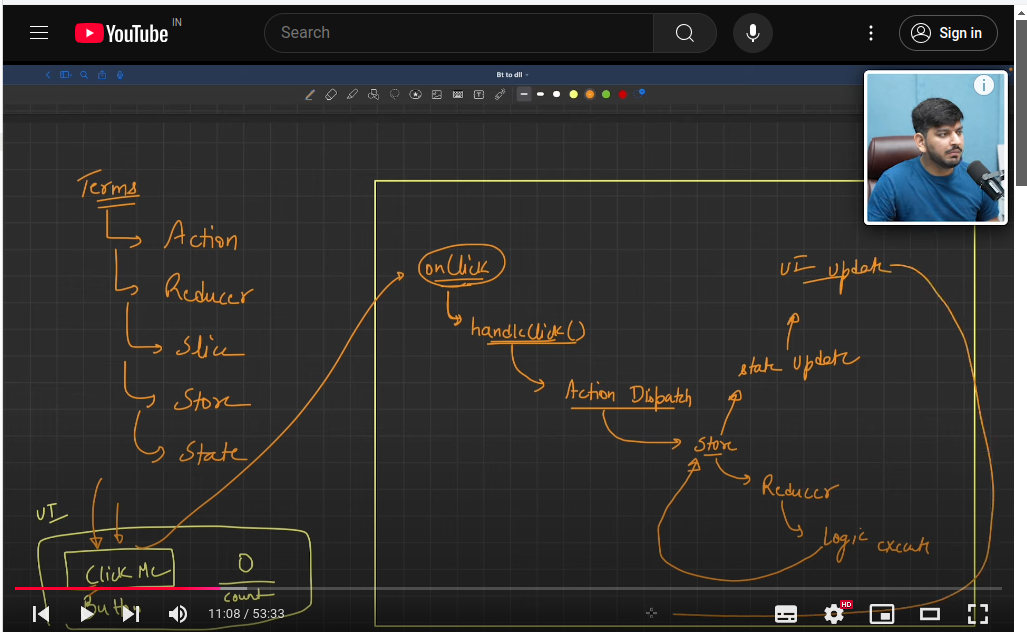 YouTube IN
Search
Sign in
Bt to dll
Terms
Action
Reducer
Slice
Store
State
UI
Click Me
Button
0
count
onClick
handleClick()
Action Dispatch
Store
Reducer
Logic excute
state update
UI update
11:08 / 53:33
HD